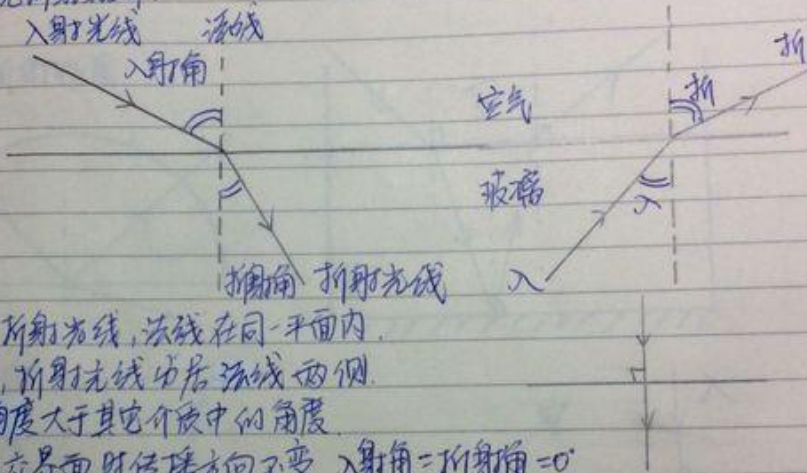 入射光线 法线
入射角
折
折
空气
玻璃
入
折射角 折射光线 入
折射光线,法线在同一平面内.
,折射光线分居法线两侧.
角度大于其它介质中的角度.
界面时传播方向不变 入射角=折射角=0°